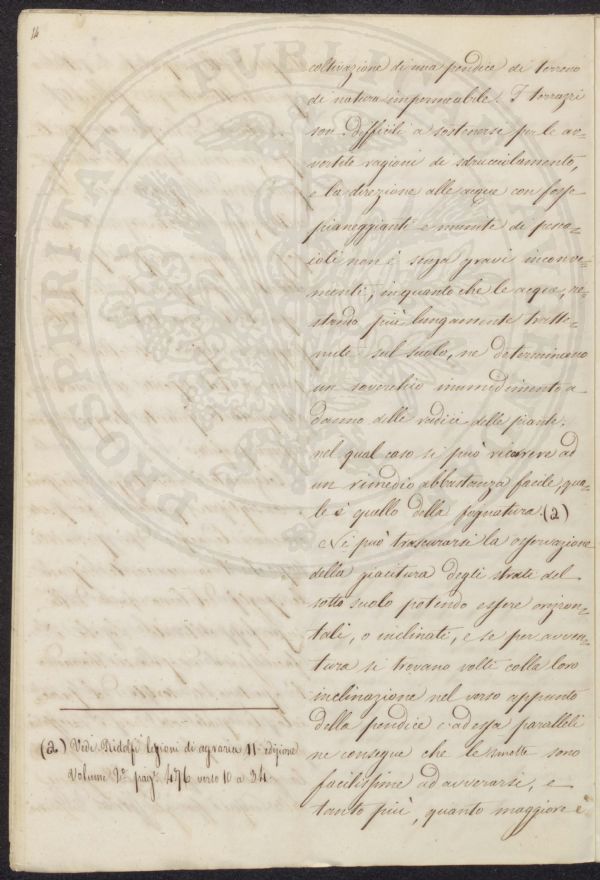 14
coltivazione di una pendice di terreno
di natura impermeabile. I terrazzi
son difficili a sostenersi per le av-
vertite ragioni di sdrucciolamento,
e la direzione alle acque con fosse
pianeggianti e munite di pesca-
ioli non è senza gravi inconve-
nienti, inquanto che le acque, re-
stando più lungamente tratte-
nute sul suolo, ne determinano
un soverchio inumidimento a
danno delle radici delle piante:
nel qual caso si può ricorrere ad
un rimedio abbastanza facile, qua-
le è quello della fognatura. (2)
Nè può trascurarsi la osservazione
della giacitura degli strati del
sotto suolo potendo essere orizzon-
tali, o inclinati, e se per avven-
tura si trovano volti colla loro
inclinazione nel verso appunto
della pendice e ad essa paralleli
ne consegue che le smotte sono
facilissime ad avverarsi, e
tanto più, quanto maggiore è
(2) Vedi Ridolfi lezioni di agraria 11ª edizione
Volume 1º pagª 476 verso 10 a 34.
PROSPERITATI PVBLICAE